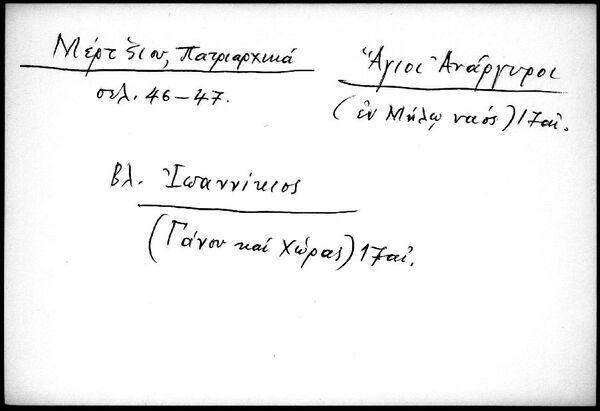 Μέρτζιου, Πατριαρχικά
σελ. 46-47.
Ἅγιοι Ἀνάργυροι
(ἐν Μήλῳ ναός) 17αἰ.
βλ. Ἰωαννίκιος
(Γάνου καί Χώρας) 17αἰ.